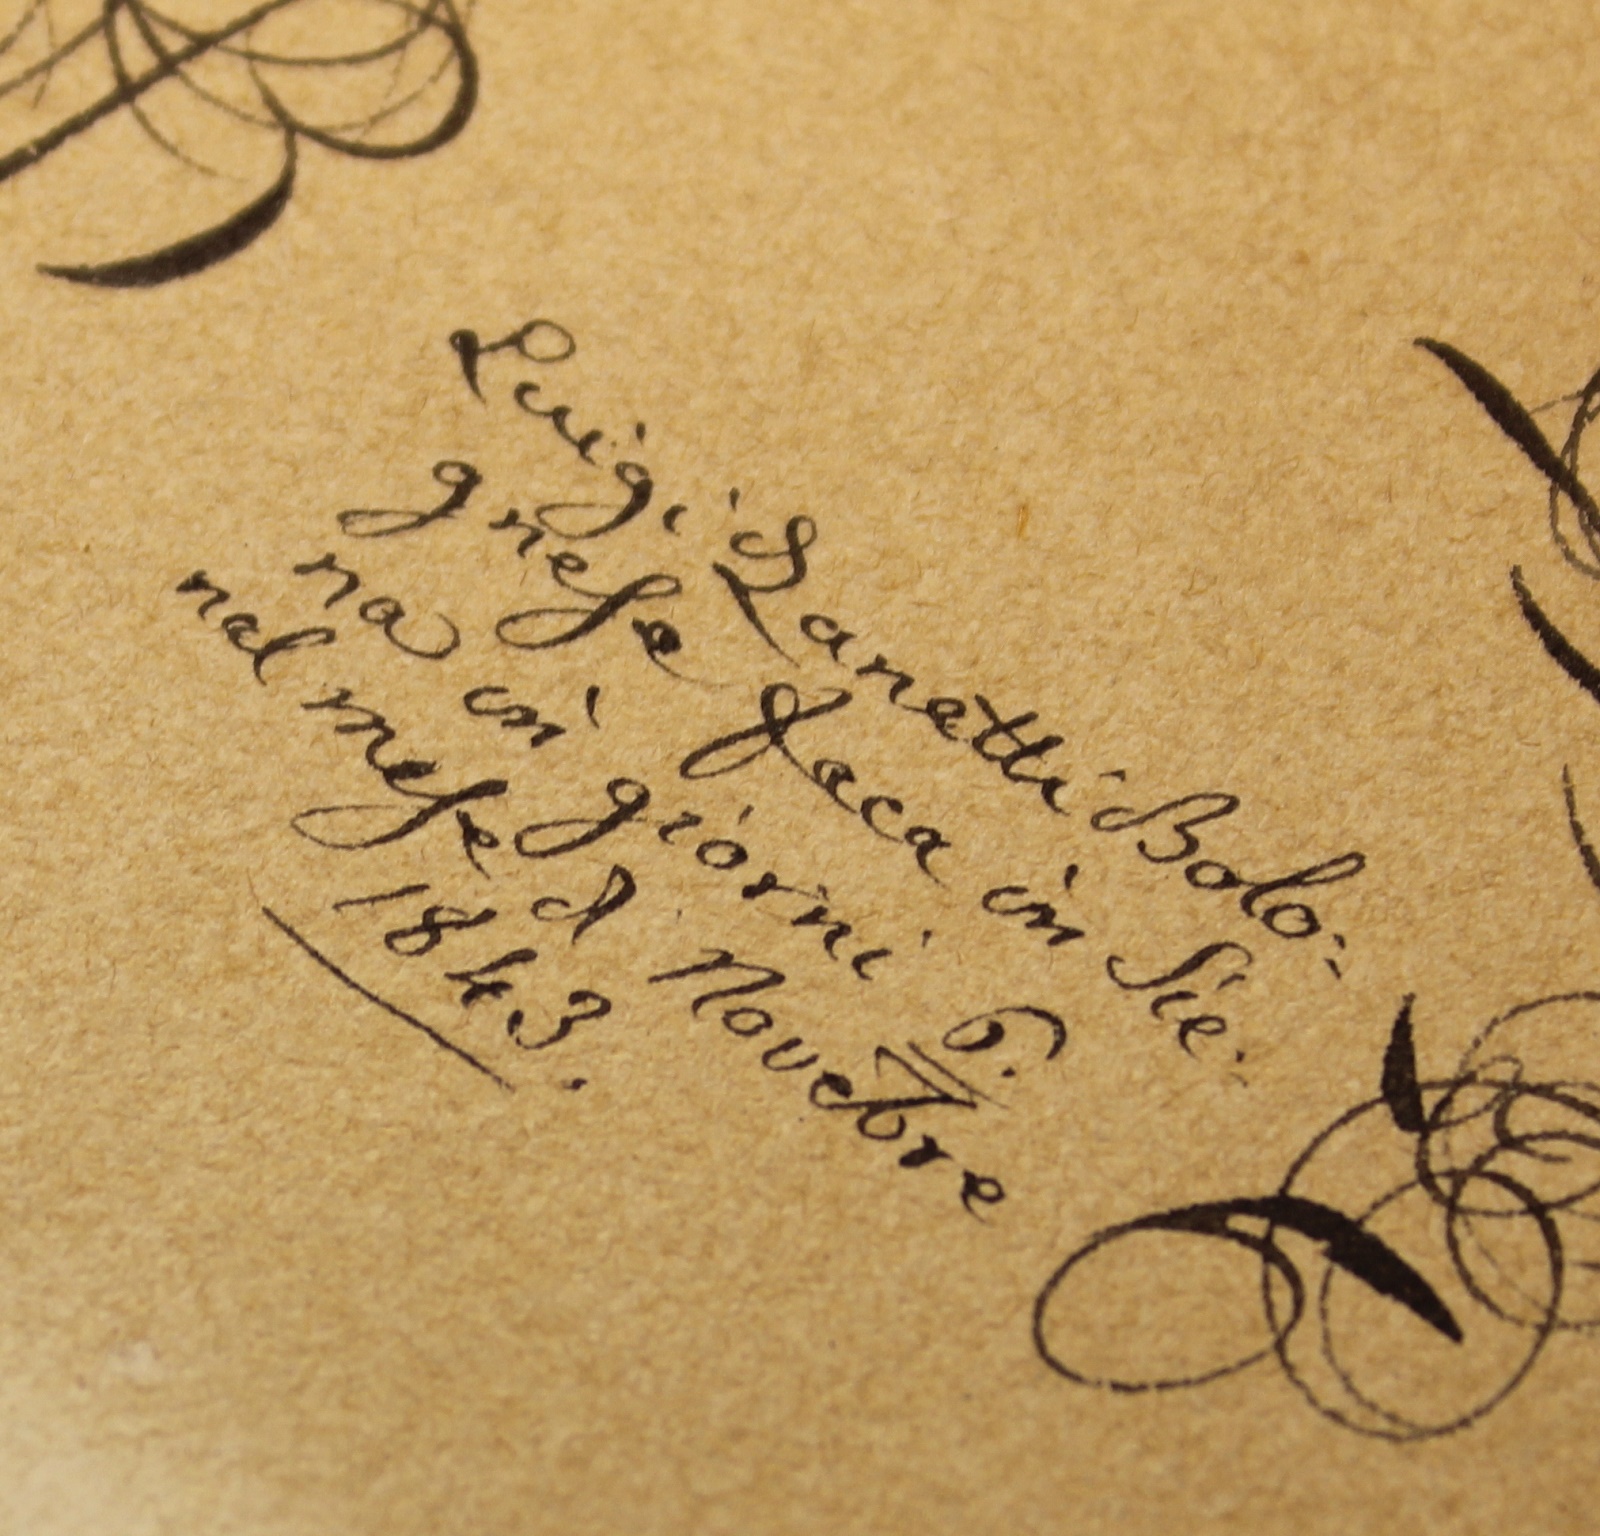 Luigi Zanatti Bolo:
gnese Faca in Sie:
na in giorni 6.
nal mese d. Novebre
1843.